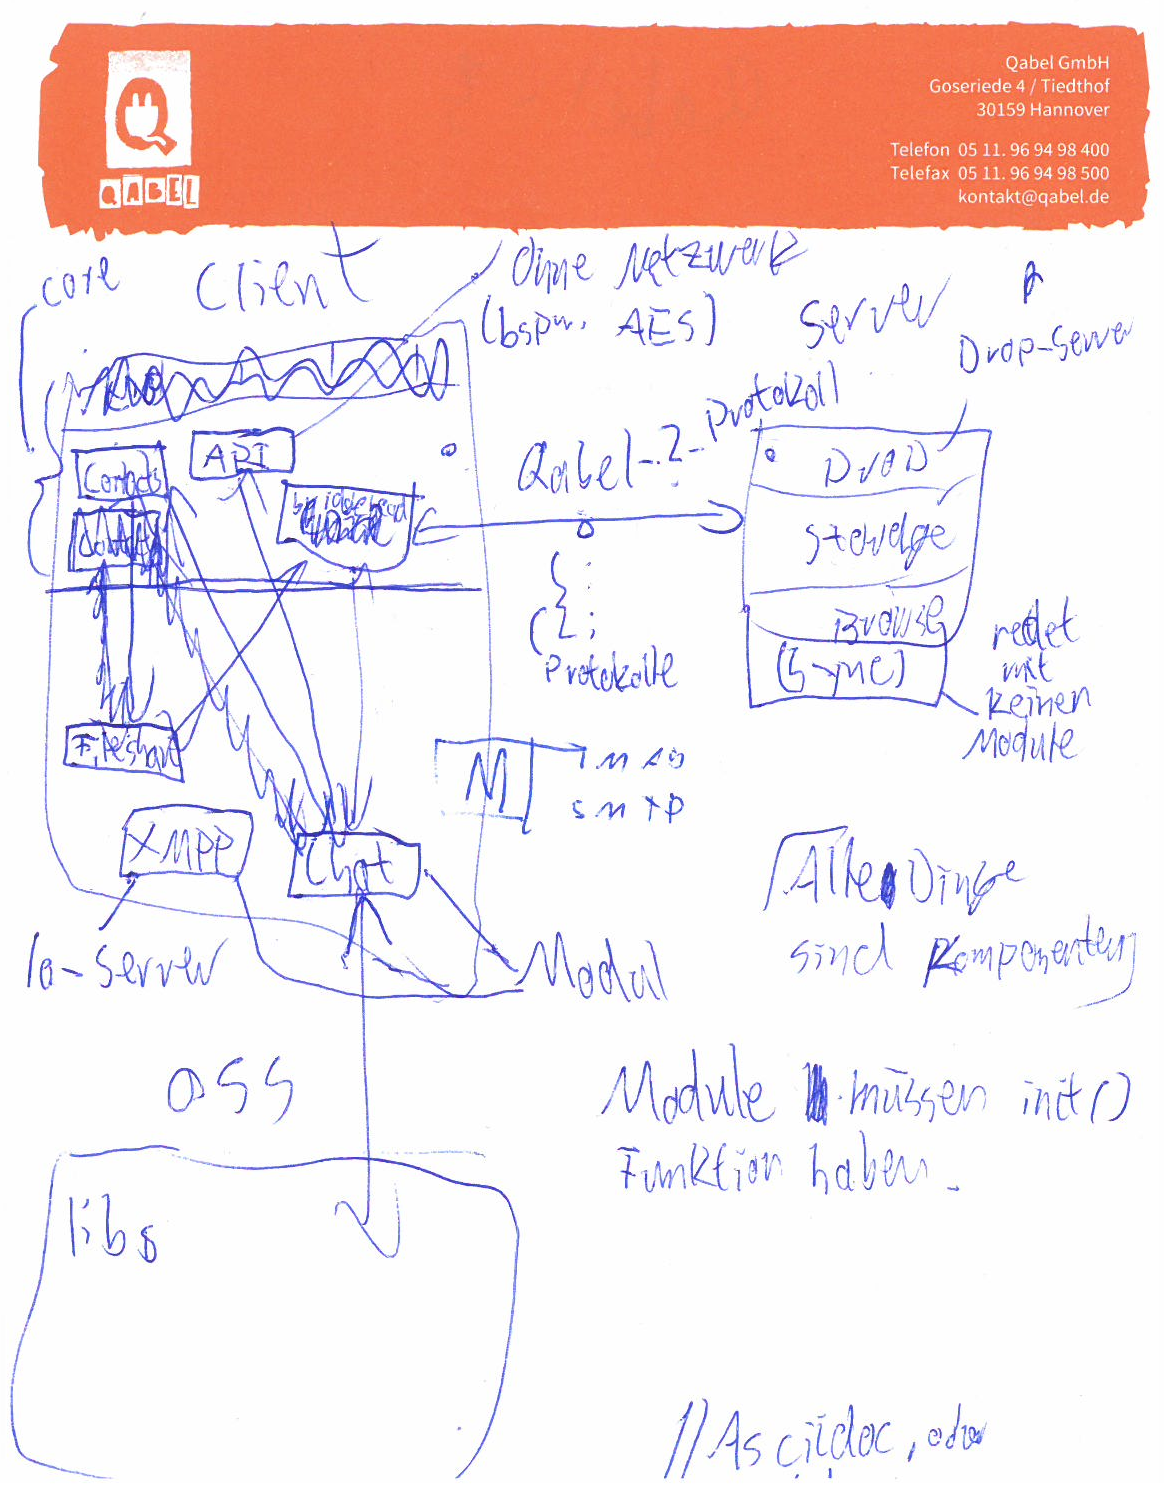 QABEL
Qabel GmbH
Goseriede 4 / Tiedthof
30159 Hannover
Telefon 05 11. 96 94 98 400
Telefax 05 11. 96 94 98 500
kontakt@qabel.de
core
Client
Ohne Netzwerk
(bspw. AES)
Server
Drop-Server
API
Contacts
Qabel-?-Protokoll
Drop
Storage
Browse
(Sync)
redet
mit
keinen
Module
Protokolle
Fileshare
M
IMAP
SMTP
XMPP
Chat
-Server
Modul
Alle Dinge
sind Komponenten
OSS
Module müssen init()
Funktion haben.
libs
//Asciidoc, oder